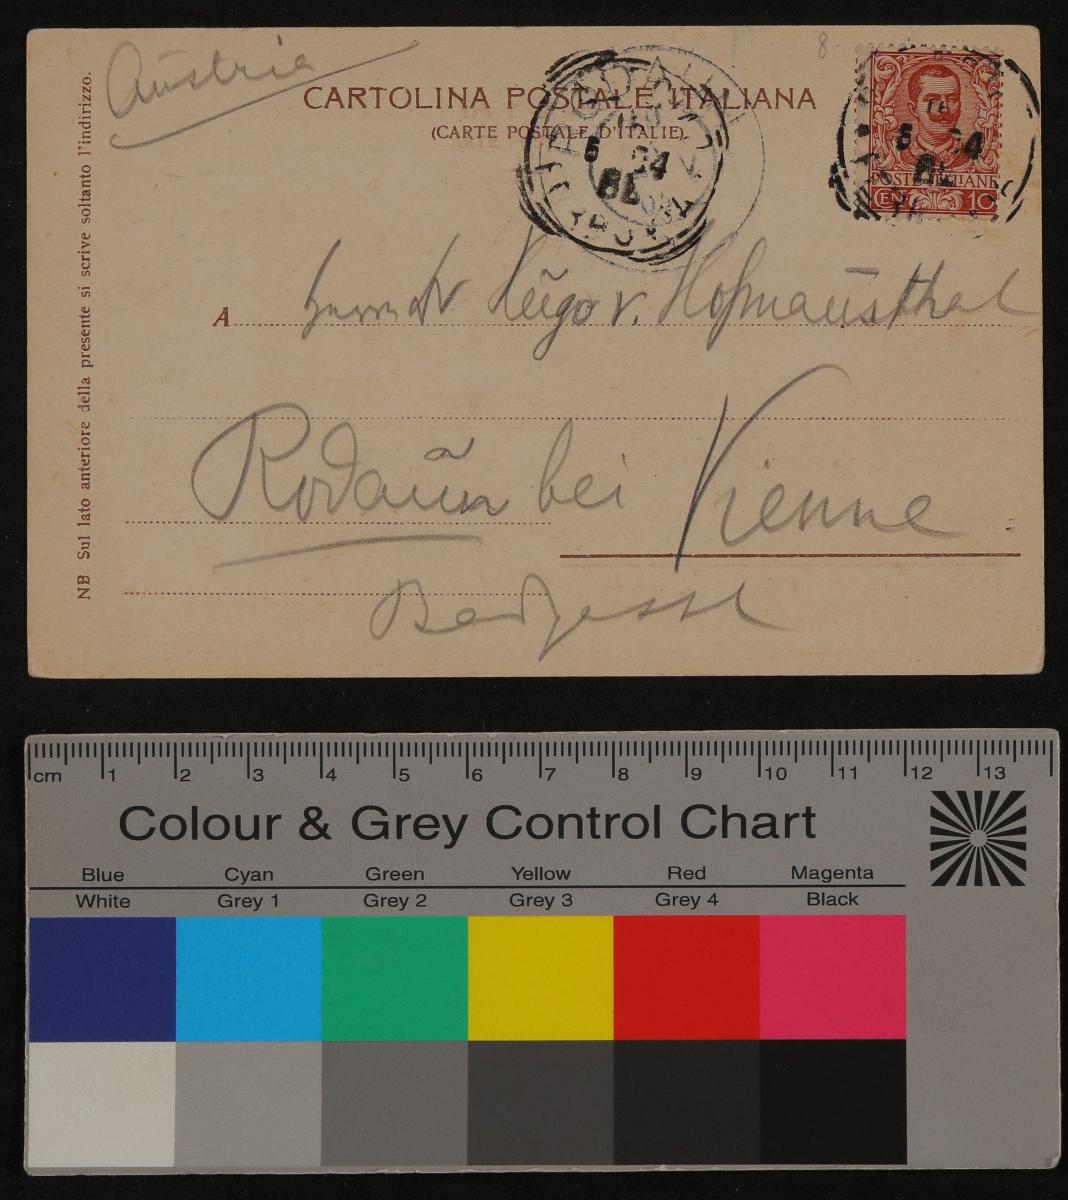 Austria
8.
CARTOLINA POSTALE ITALIANA
(CARTE POSTALE D'ITALIE)
NB. Sul lato anteriore della presente si scrive soltanto l'indirizzo.
5
04
8L
5
04
8L
POSTE ITALIANE
CEN. 10
A Herrn Dr Hugo v. Hofmannsthal
Rodaun bei Vienne
Badgasse
cm 1 2 3 4 5 6 7 8 9 10 11 12 13
Colour & Grey Control Chart
Blue Cyan Green Yellow Red Magenta
White Grey 1 Grey 2 Grey 3 Grey 4 Black